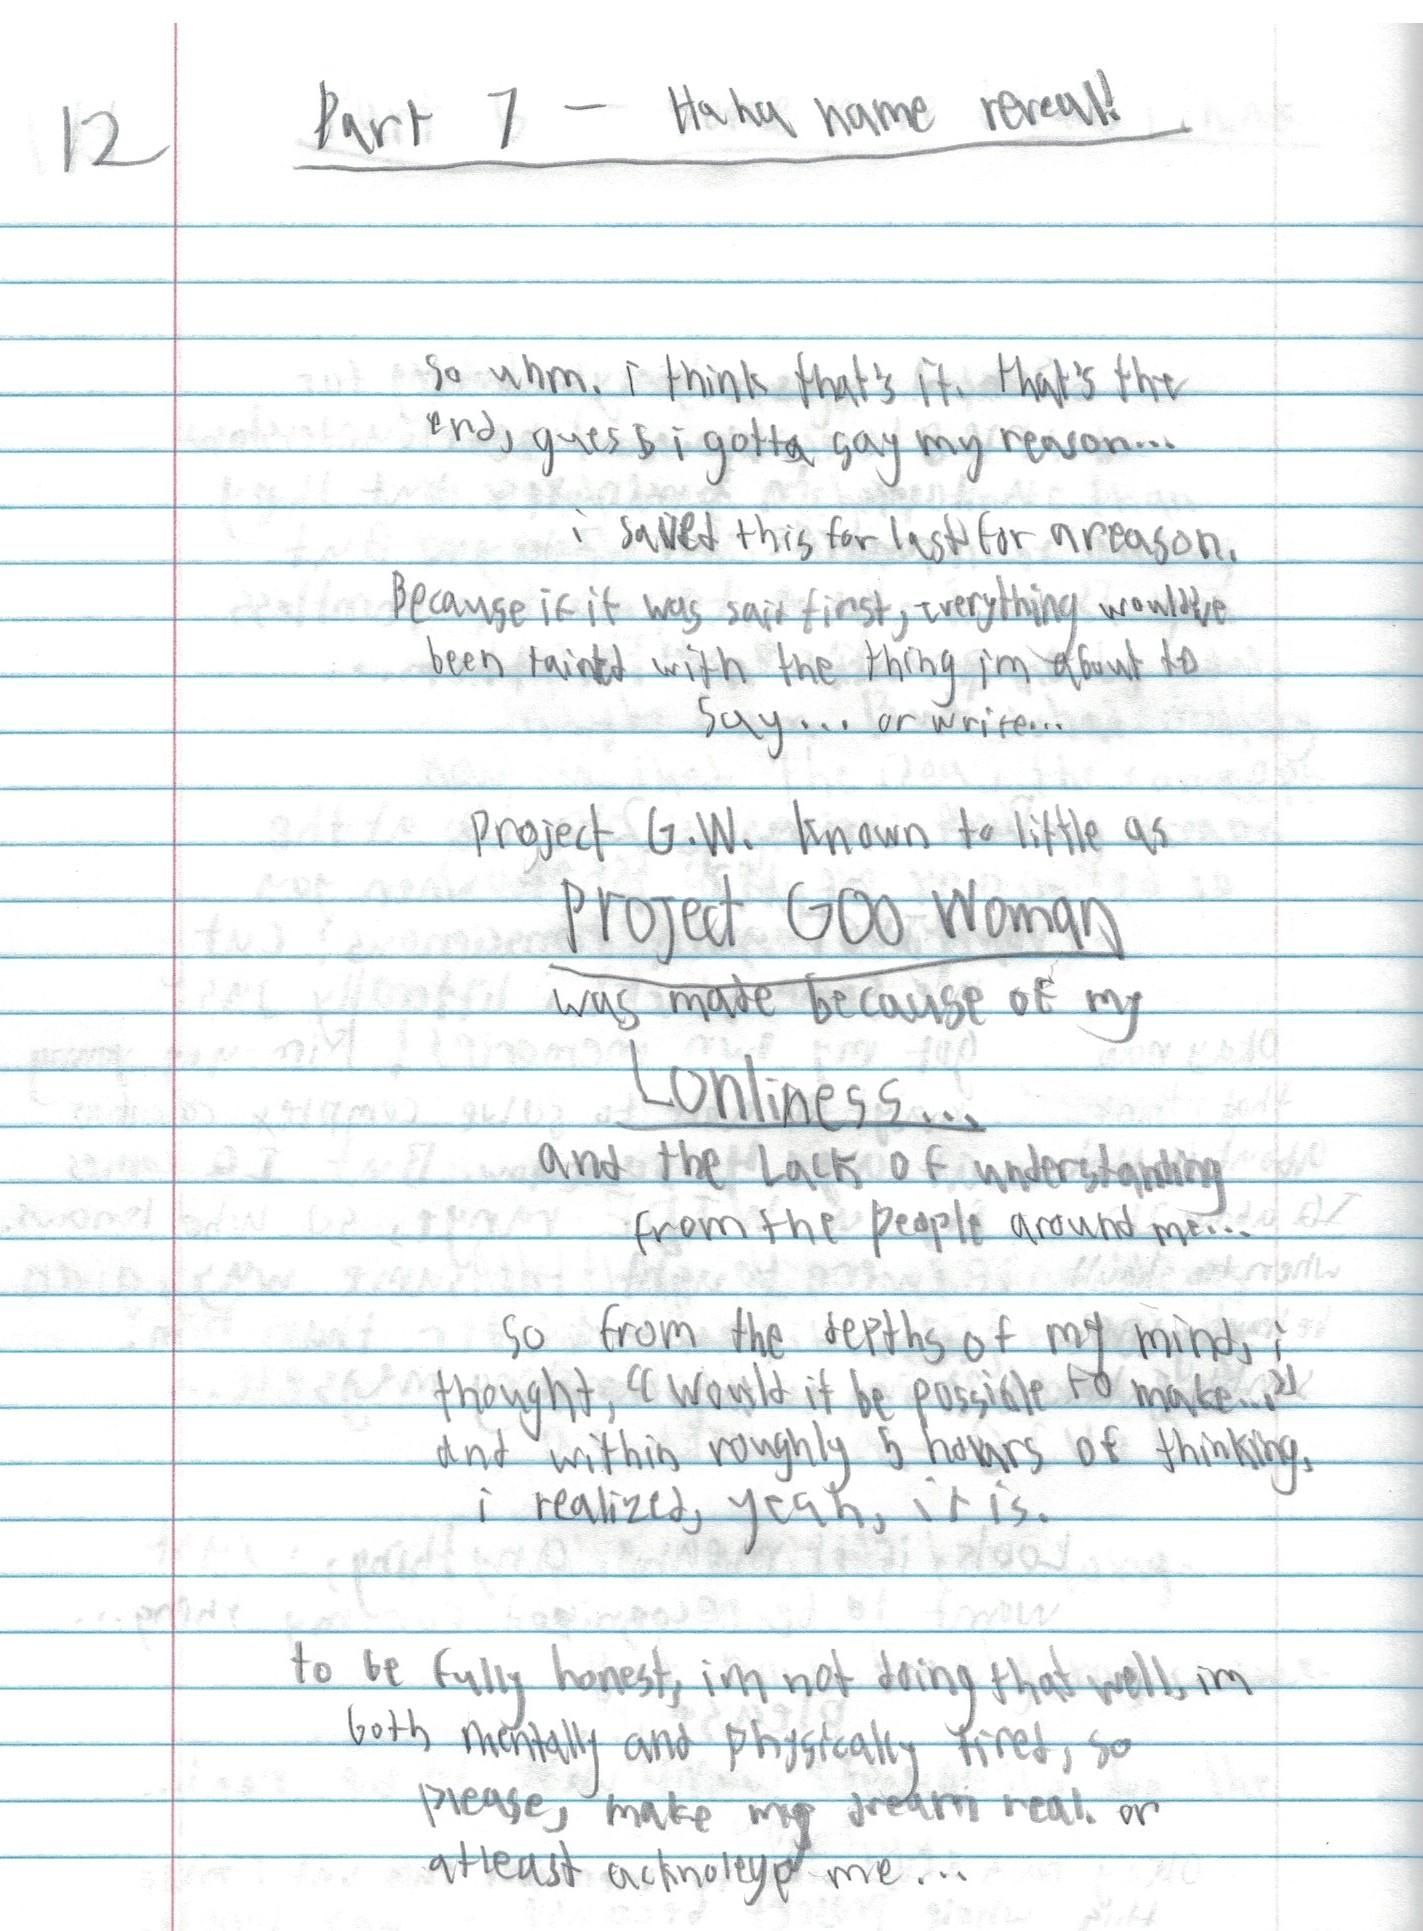 12
Part 7 - Haha name reveal!
so uhm. i think that's it. that's the
end, guess i gotta say my reason...
i saved this for last for a reason.
Because if it was said first, everything would've
been tainted with the thing im about to
say... or write...
Project G.W. known to little as
Project Goo Woman
was made because of my
Lonliness...
and the Lack of understanding
from the people around me...
so from the depths of my mind, i
thought, "Would it be possible to make...?"
and within roughly 5 hours of thinking,
i realized, yeah, it is.
to be fully honest, im not doing that well. im
both mentally and physically tired, so
please, make my dream real. or
atleast acknoleyge me...